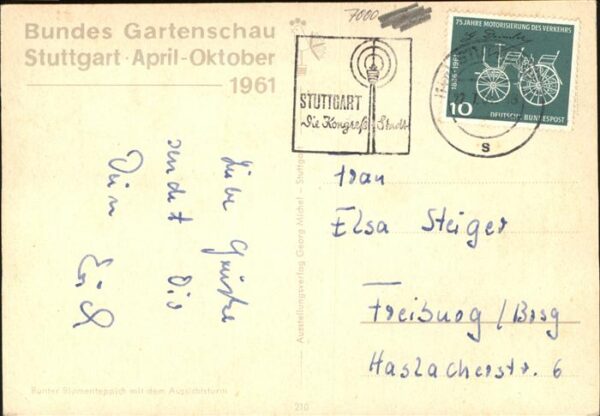 Bundes Gartenschau
Stuttgart · April-Oktober
1961
7000
STUTTGART
Die Kongreß-Stadt
75 JAHRE MOTORISIERUNG DES VERKEHRS
1886-1961
10
DEUTSCHE BUNDESPOST
s
Liebe Grüße
sendet Dir
Dein
Ausstellungsverlag Georg Michel - Stuttgart
Frau
Elsa Steiger
Freiburg / Brsg
Haslacherstr. 6
Bunter Blumenteppich mit dem Aussichtsturm
210